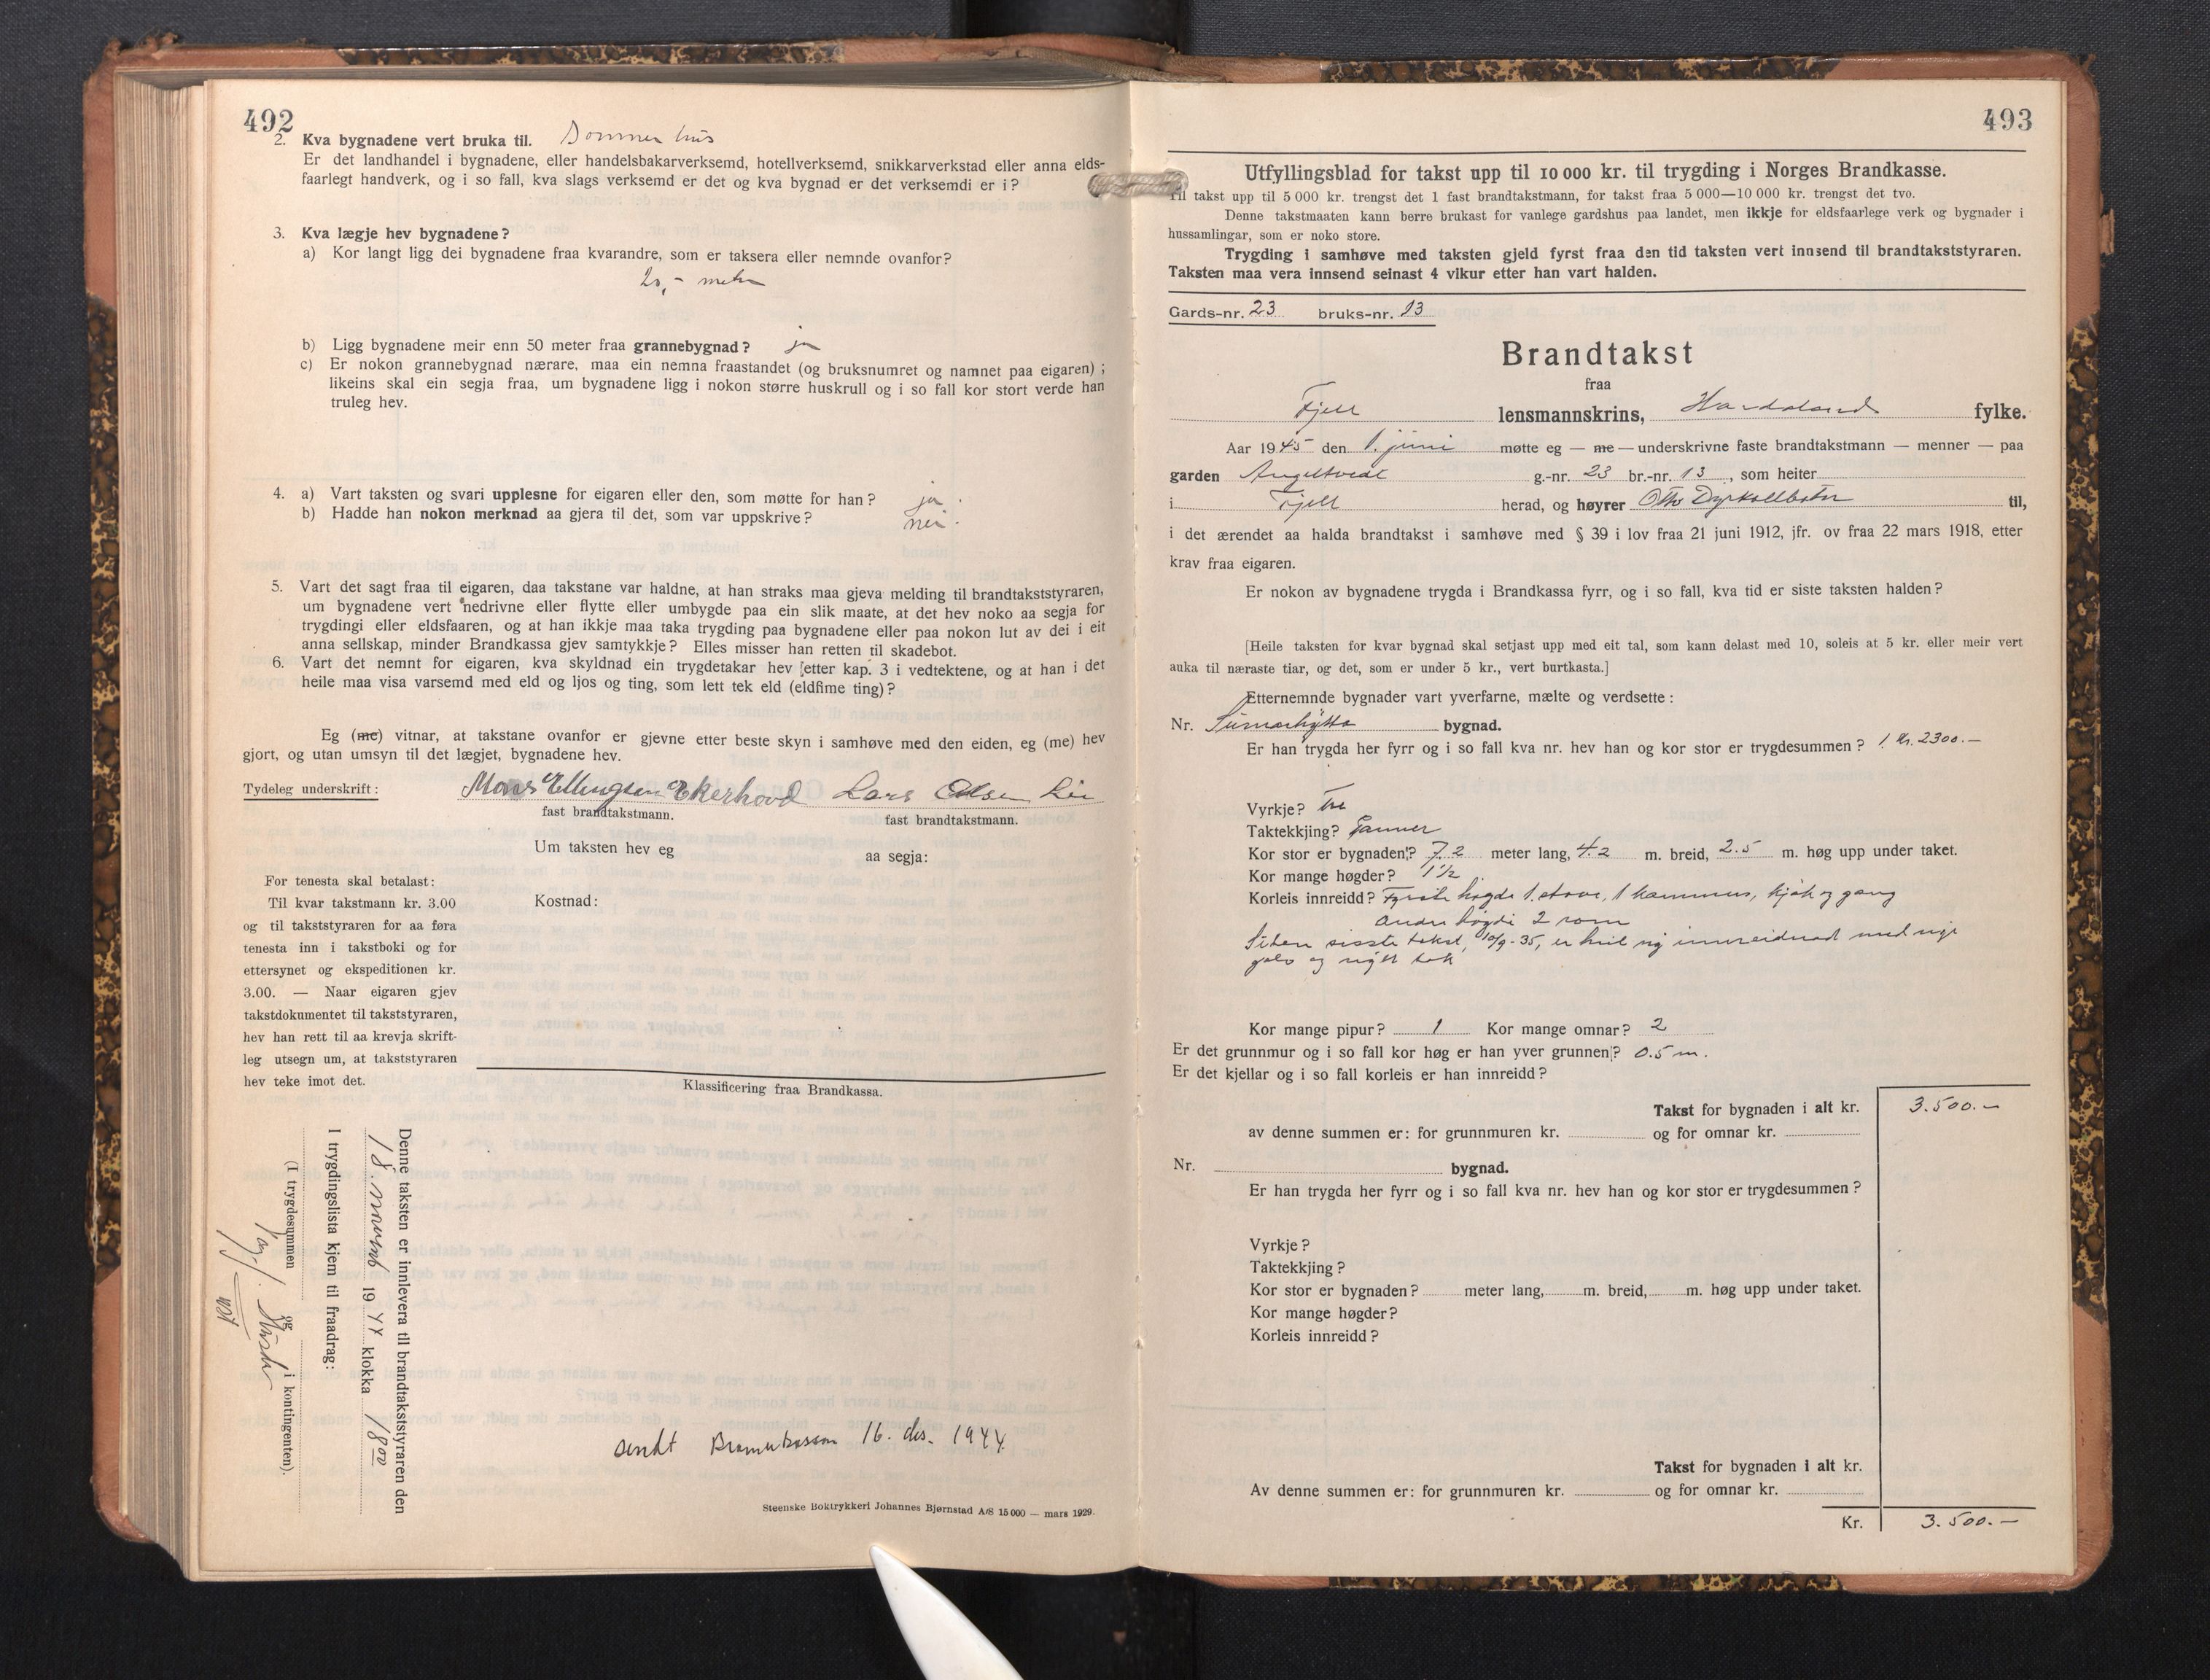 492
2. Kva bygnadene vert bruka til. Sommerhus
Er det landhandel i bygnadene, eller handelsbakarverksemd, hotellverksemd, snikkarverkstad eller anna elds-
faarlegt handverk, og i so fall, kva slags verksemd er det og kva bygnad er det verksemdi er i?
3. Kva lægje hev bygnadene?
a) Kor langt ligg dei bygnadene fraa kvarandre, som er taksera eller nemnde ovanfor?
20,- meter
b) Ligg bygnadene meir enn 50 meter fraa grannebygnad? ja
c) Er nokon grannebygnad nærare, maa ein nemna fraastandet (og bruksnumret og namnet paa eigaren) ;
likeins skal ein segja fraa, um bygnadene ligg i nokon større huskrull og i so fall kor stort verde han
truleg hev.
4. a) Vart taksten og svari upplesne for eigaren eller den, som møtte for han? ja.
b) Hadde han nokon merknad aa gjera til det, som var uppskrive? nei.
5. Vart det sagt fraa til eigaren, daa takstane var haldne, at han straks maa gjeva melding til brandtakststyraren,
um bygnadene vert nedrivne eller flytte eller umbygde paa ein slik maate, at det hev noko aa segja for
trygdingi eller eldsfaaren, og at han ikkje maa taka trygding paa bygnadene eller paa nokon lut av dei i eit
anna sellskap, minder Brandkassa gjev samtykkje? Elles misser han retten til skadebot.
6. Vart det nemnt for eigaren, kva skyldnad ein trygdetakar hev etter kap. 3 i vedtektene, og at han i det
heile maa visa varsemd med eld og ljos og ting, som lett tek eld (eldfime ting)?
Eg (me) vitnar, at takstane ovanfor er gjevne etter beste skyn i samhøve med den eiden, eg (me) hev
gjort, og utan umsyn til det lægjet, bygnadene hev.
Tydeleg underskrift: Mons Ellingsen Ekerhovd Lars Olsen Lie
fast brandtakstmann. fast brandtakstmann.
Um taksten hev eg aa segja:
Kostnad:
For tenesta skal betalast:
Til kvar takstmann kr. 3.00
og til takststyraren for aa føra
tenesta inn i takstboki og for
ettersynet og ekspeditionen kr.
3.00. — Naar eigaren gjev
takstdokumentet til takststyraren,
hev han rett til aa krevja skrift-
leg utsegn um, at takststyraren
hev teke imot det.
Klassificering fraa Brandkassa.
Denne taksten er innlevera til brandtakststyraren den
18. novemb 1944 klokka 18 00
I trygdingslista kjem til fraadrag:
(I trygdesummen og i kontingenten).
sendt Brannkassen 16. des. 1944
Steenske Boktrykkeri Johannes Bjørnstad A/S 15 000 — mars 1929.
493
Utfyllingsblad for takst upp til 10 000 kr. til trygding i Norges Brandkasse.
Til takst upp til 5 000 kr. trengst det 1 fast brandtakstmann, for takst fraa 5 000—10 000 kr. trengst det tvo.
Denne takstmaaten kann berre brukast for vanlege gardshus paa landet, men ikkje for eldsfaarlege verk og bygnader i
hussamlingar, som er noko store.
Trygding i samhøve med taksten gjeld fyrst fraa den tid taksten vert innsend til brandtakststyraren.
Taksten maa vera innsend seinast 4 vikur etter han vart halden.
Gards-nr. 23 bruks-nr. 13
Brandtakst
fraa
Fjell lensmannskrins, Hordaland fylke.
Aar 1945 den 1. juni møtte eg — me — underskrivne faste brandtakstmann — menner — paa
garden Angeltvedt g.-nr. 23 br.-nr. 13, som heiter
i Fjell herad, og høyrer Otto Dyrkolbotn til,
i det ærendet aa halda brandtakst i samhøve med § 39 i lov fraa 21 juni 1912, jfr. ov fraa 22 mars 1918, etter
krav fraa eigaren.
Er nokon av bygnadene trygda i Brandkassa fyrr, og i so fall, kva tid er siste taksten halden?
[Heile taksten for kvar bygnad skal setjast upp med eit tal, som kann delast med 10, soleis at 5 kr. eller meir vert
auka til næraste tiar, og det, som er under 5 kr., vert burtkasta.]
Etternemnde bygnader vart yverfarne, mælte og verdsette:
Nr. Sumarhytta bygnad.
Er han trygda her fyrr og i so fall kva nr. hev han og kor stor er trygdesummen? 1. Kr. 2300.—
Vyrkje? Tre
Taktekkjing? Panner
Kor stor er bygnaden? 7.2 meter lang, 4.2 m. breid, 2.5 m. høg upp under taket.
Kor mange høgder? 1 1/2
Korleis innreidd? Fyrste høgde 1 stove, 1 kammers, kjøk og gang
andre høgde 2 rom
Siden sisste takst, 10/9-35, er huset ny innreidnad med nye
golv og nytt tak
Kor mange pipur? 1 Kor mange omnar? 2
Er det grunnmur og i so fall kor høg er han yver grunnen? 0.5 m.
Er det kjellar og i so fall korleis er han innreidd?
Takst for bygnaden i alt kr. 3.500.—
av denne summen er: for grunnmuren kr. og for omnar kr.
Nr. bygnad.
Er han trygda her fyrr og i so fall kva nr. hev han og kor stor er trygdesummen?
Vyrkje?
Taktekkjing?
Kor stor er bygnaden? meter lang, m. breid, m. høg upp under taket.
Kor mange høgder?
Korleis innreidd?
Takst for bygnaden i alt kr.
Av denne summen er: for grunnmuren kr. og for omnar kr.
Kr. 3.500.—